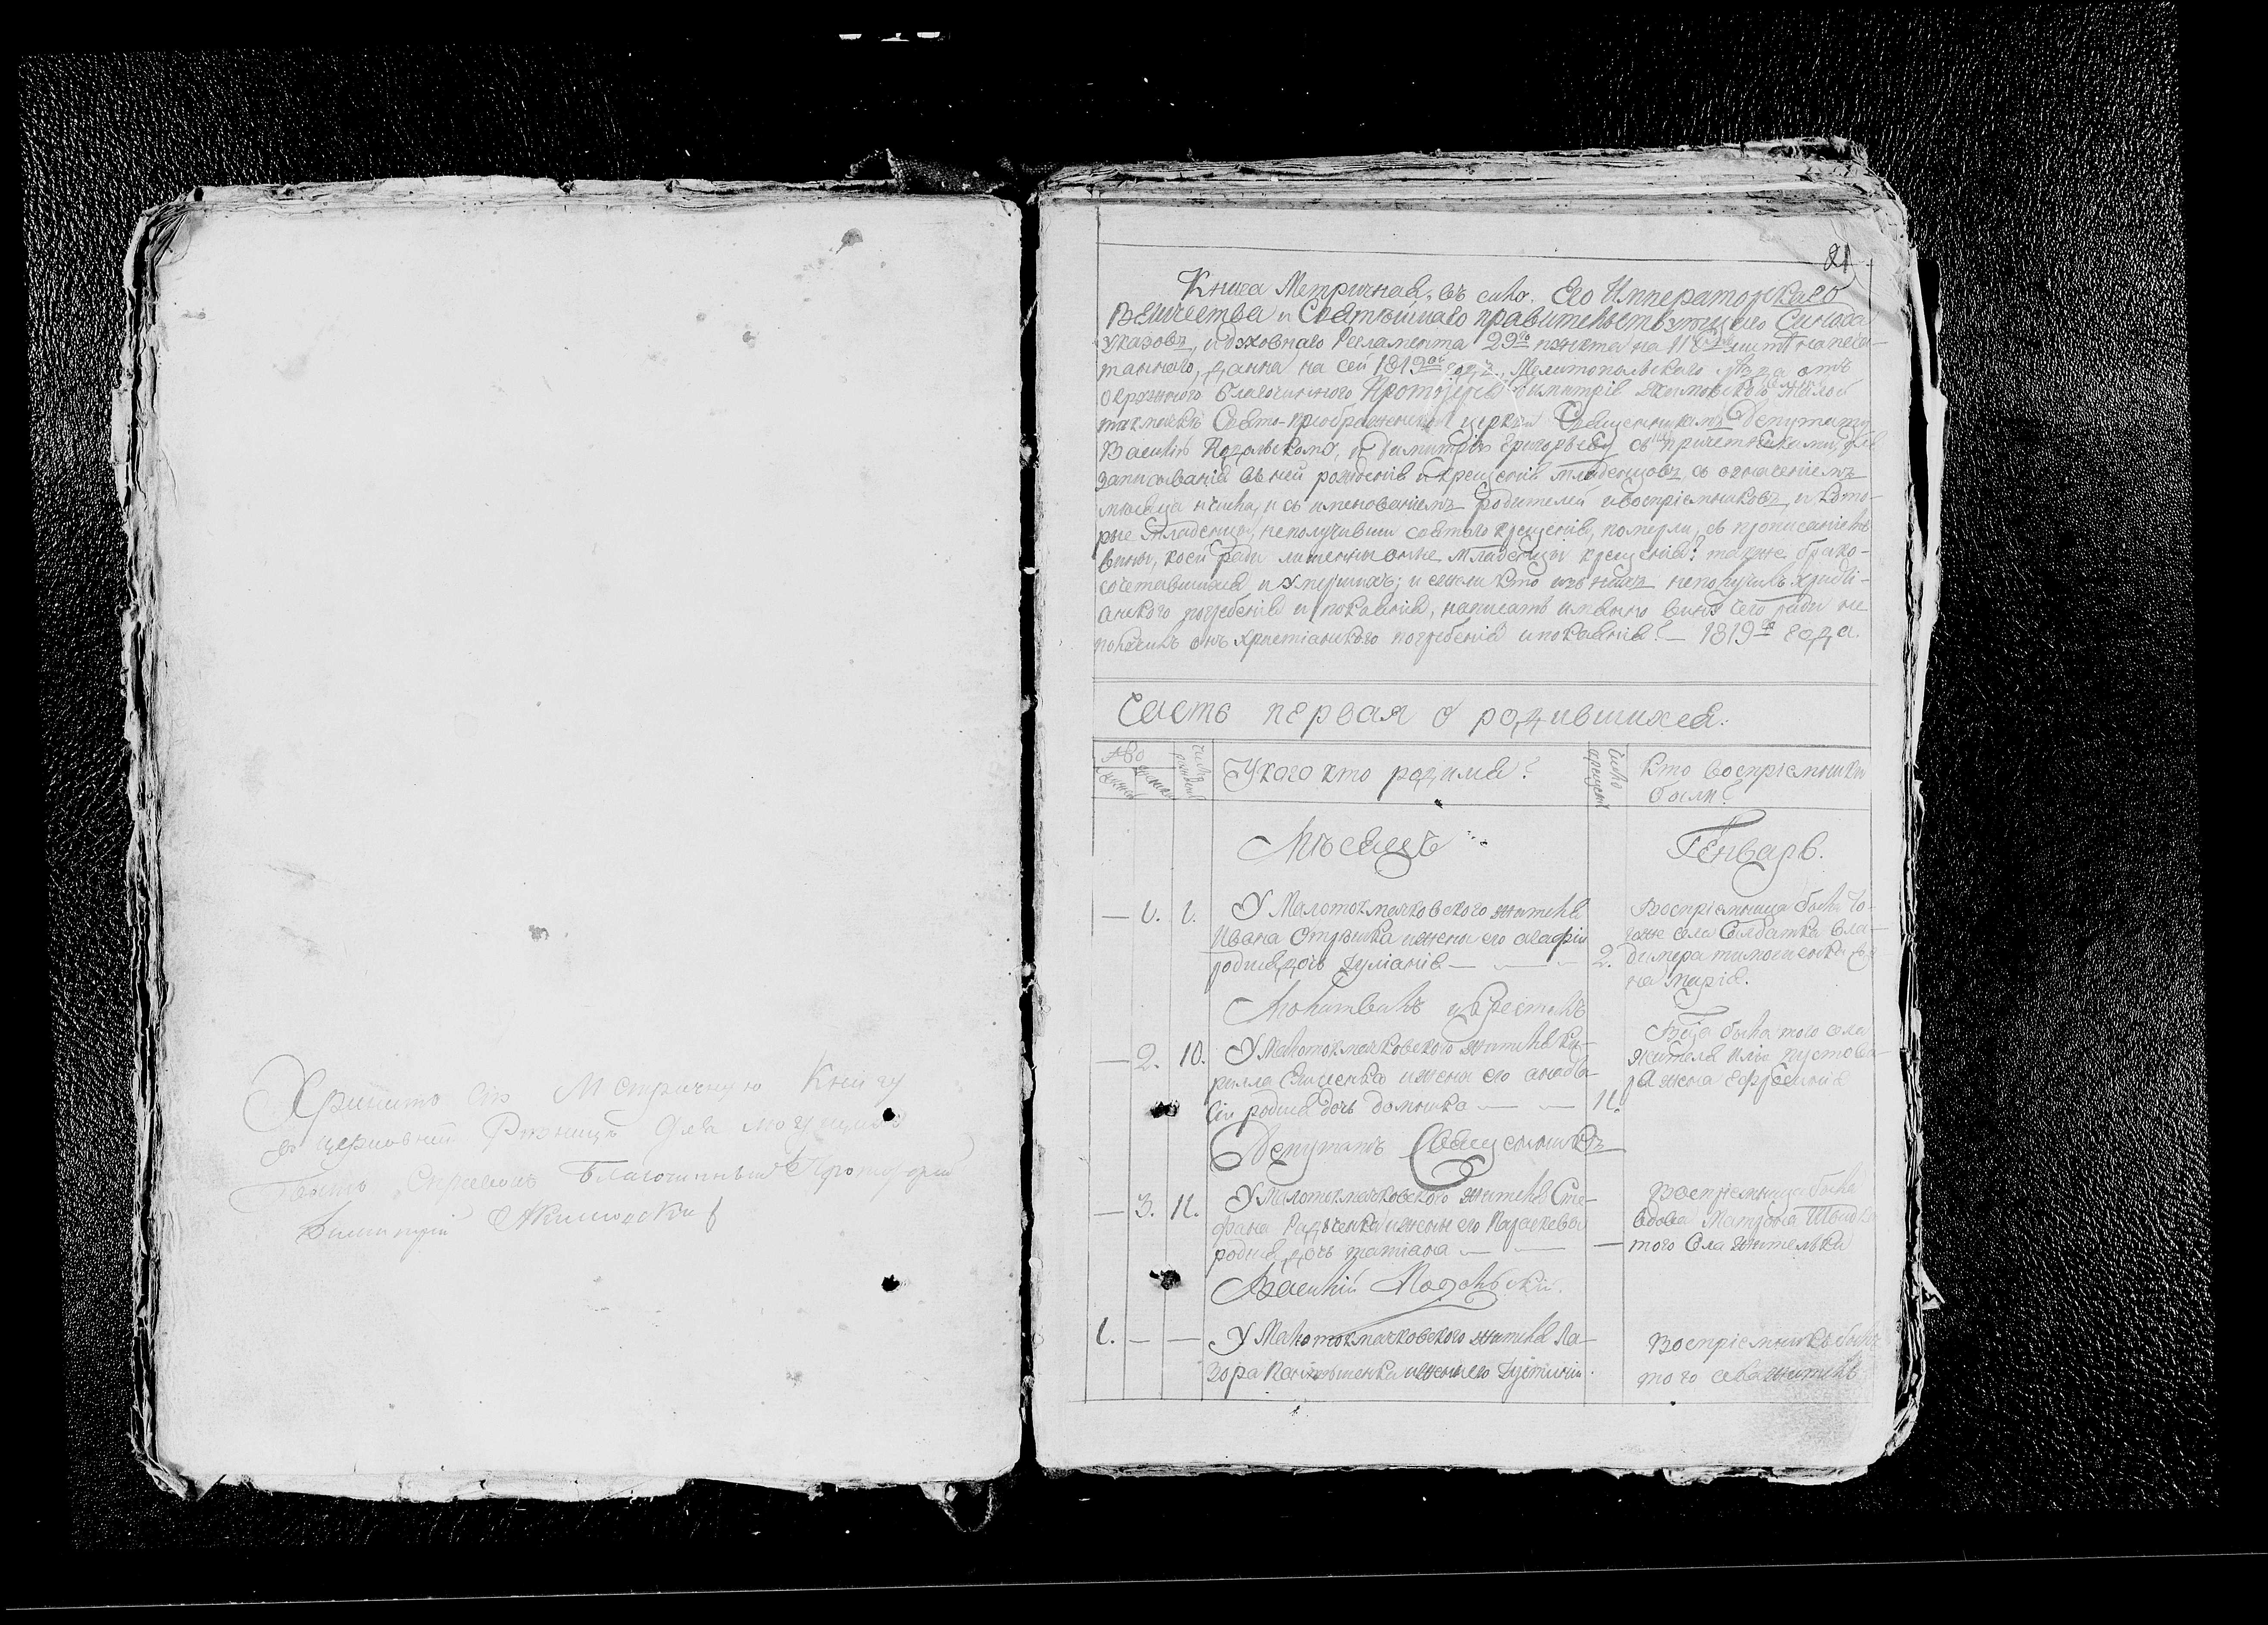 Хранить сію Метричную Книгу
въ церковной Ризницѣ для могущихъ
быть справокъ Благочинный Протоіерей
Димитрій
21
Книга Метричная, въ силу Его Императорскаго
Величества и Святѣйшаго правительствующаго Синода
указовъ, и духовнаго Регламента 29го пункта на 118
таннаго, данна на сей 1819й годъ, Мелитопольского уѣзда отъ
окружного благочинного Протоіерея Димитрія
токмачкѣ Свято-преображенской церкви Священникамъ Депутату
Василію Подольскому, и Димитрію Григорьеву съ причетниками, для
записыванія въ ней рожденія и крещенія младенцовъ, съ означеніемъ
мѣсяца и числа, и съ именованіемъ родителей и воспріемниковъ, и кото-
рые младенцы, неполучивши святого крещенія, померли, съ прописаніемъ
вины, коей ради лишенны оные младенцы крещенія? также брако-
сочетавшихся и умершихъ; и ежели кто изъ нихъ неполучилъ христі-
анского погребенія и покаянія, написать имянно вину чего ради не
получилъ онъ христіанского погребенія и покаянія? — 1819го года.
Часть первая о родившихся.
Число рожденій
У кого кто родился?
Число крещенія
Кто воспріемники
были?
Мѣсяцъ
Генварь.
— 1. 1. У Малотокмачковского жителя
Ивана Отрѣшка и жены его Агафіи
родися дочь Іуліанія — — — 2.
Воспріемница была то-
гоже села Солдатка Вла-
димера
на Марія.
Молитвилъ и крестилъ
— 2. 10. У Малотокмачковского жителя Ки-
рилла и жены его
родися дочь Домника — — 11.
была того села
жителя Ильи Пустова-
ра жена Ефросинія
Депутатъ Священникъ
— 3. 11. У Малотокмачковского жителя Сте-
фана Радченка и жены его Параскевы
родися дочь Татіана — — —
Воспріемница была
вдова Матрона
того Села жителька
Василій Подольскій.
1. — — У Малотокмачковского жителя Ла-
зора и жены его Іустиніи
Воспріемникъ былъ
того села житель